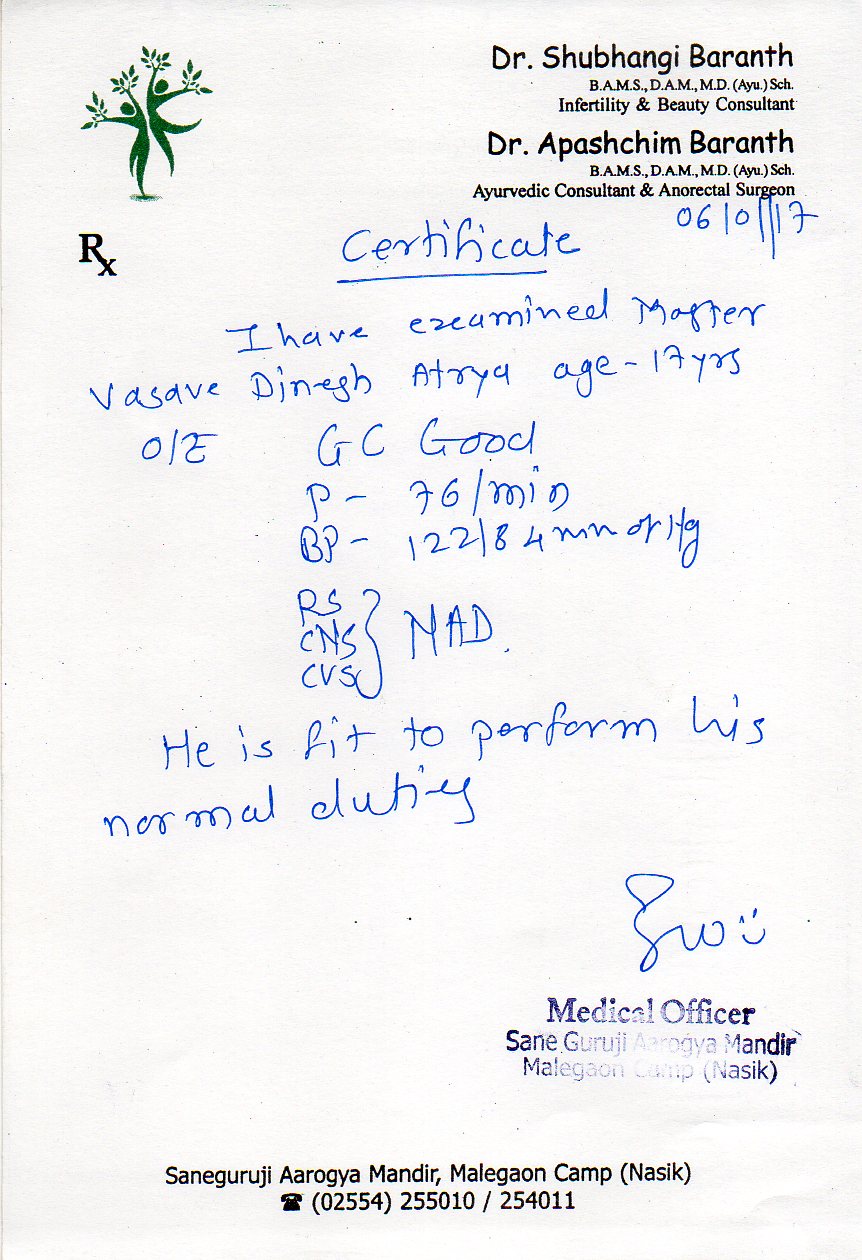 Dr. Shubhangi Baranth
B.A.M.S., D.A.M., M.D. (Ayu.) Sch.
Infertility & Beauty Consultant
Dr. Apashchim Baranth
B.A.M.S., D.A.M., M.D. (Ayu.) Sch.
Ayurvedic Consultant & Anorectal Surgeon
06/01/17
Rx
Certificate
I have examined Master
Vasave Dinesh Atrya age - 17 yrs
O/E GC Good
P - 76/min
BP - 122/84 mm of Hg
RS
CNS } NAD.
CVS
He is fit to perform his
normal duties
Medical Officer
Sane Guruji Aarogya Mandir
Malegaon Camp (Nasik)
Saneguruji Aarogya Mandir, Malegaon Camp (Nasik)
☎ (02554) 255010 / 254011